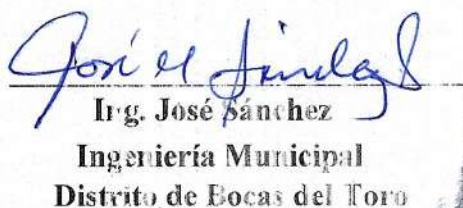 José M Sánchez S
Ing. José Sánchez
Ingeniería Municipal
Distrito de Bocas del Toro